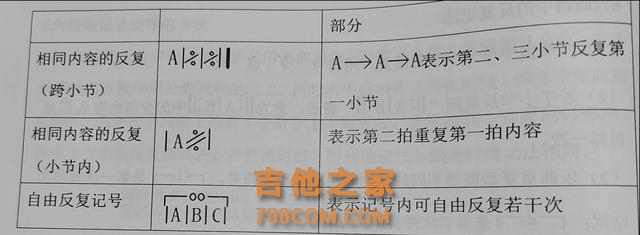 部分
相同内容的反复
（跨小节）
A|٪|٪|
A→A→A表示第二、三小节反复第
一小节
相同内容的反复
（小节内）
|A٪|
表示第二拍重复第一拍内容
自由反复记号
oo
|A|B|C|
表示记号内可自由反复若干次
吉他之家
798COM.COM